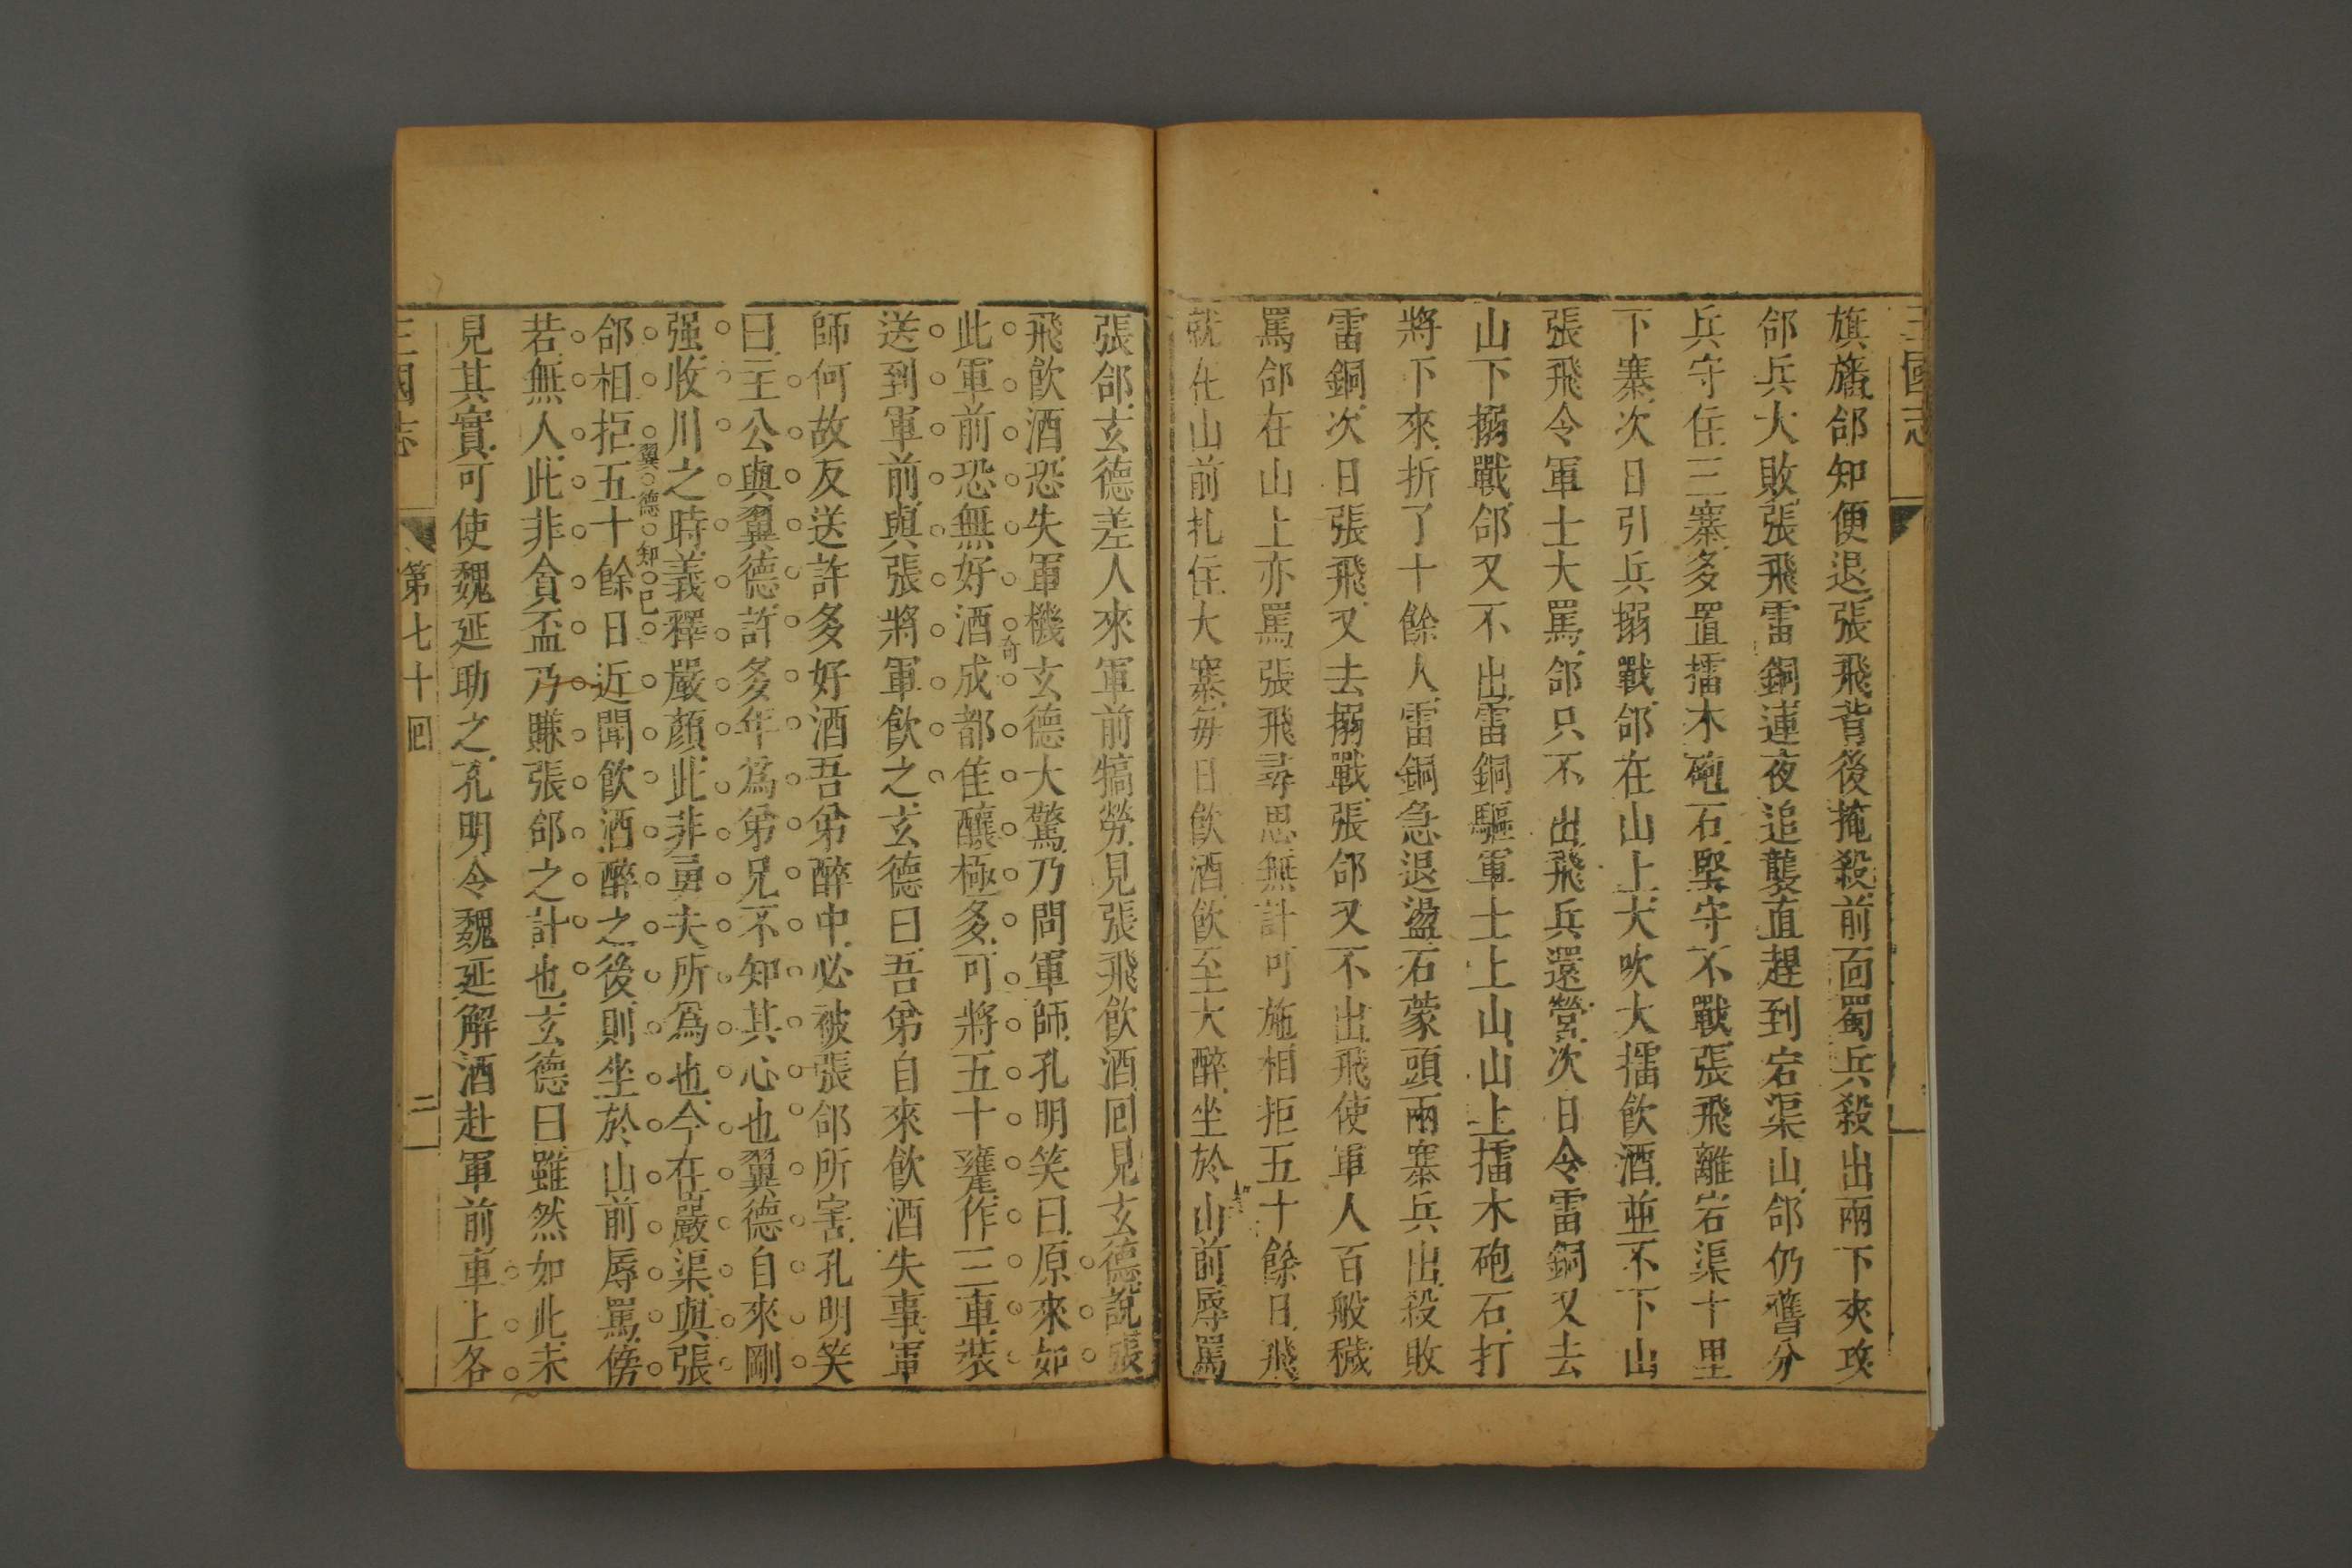 三國志
旗旛郃知便退張飛背後掩殺前面蜀兵殺出兩下夾攻
郃兵大敗張飛雷銅連夜追襲直趕到宕渠山郃仍舊分
兵守住三寨多置擂木砲石堅守不戰張飛離岩渠十里
下寨次日引兵搦戰郃在山上大吹大擂飲酒並不下山
張飛令軍士大罵郃只不出飛兵還營次日令雷銅又去
山下搦戰郃又不出雷銅驅軍士上山山上擂木砲石打
將下來折了十餘人雷銅急退盪石蒙頭兩寨兵出殺敗
雷銅次日張飛又去搦戰張郃又不出飛使軍人百般穢
罵郃在山上亦罵張飛尋思無計可施相拒五十餘日飛
就在山前扎住大寨每日飲酒飲至大醉坐於山前辱罵
張郃玄德差人來軍前犒勞見張飛飲酒回見玄德說張
飛飲酒恐失軍機玄德大驚乃問軍師孔明笑曰原來如
奇
此軍前恐無好酒成都佳釀極多可將五十甕作三車裝
送到軍前與張將軍飲之玄德曰吾弟自來飲酒失事軍
師何故反送許多好酒吾弟醉中必被張郃所害孔明笑
曰主公與翼德許多年爲弟兄不知其心也翼德自來剛
强收川之時義釋嚴顏此非勇夫所爲也今在巖渠與張
翼德知己
郃相拒五十餘日近聞飲酒醉之後則坐於山前辱罵傍
若無人此非貪盃乃賺張郃之計也玄德曰雖然如此未
見其實可使魏延助之孔明令魏延解酒赴軍前車上各
三國志
第七十回
二